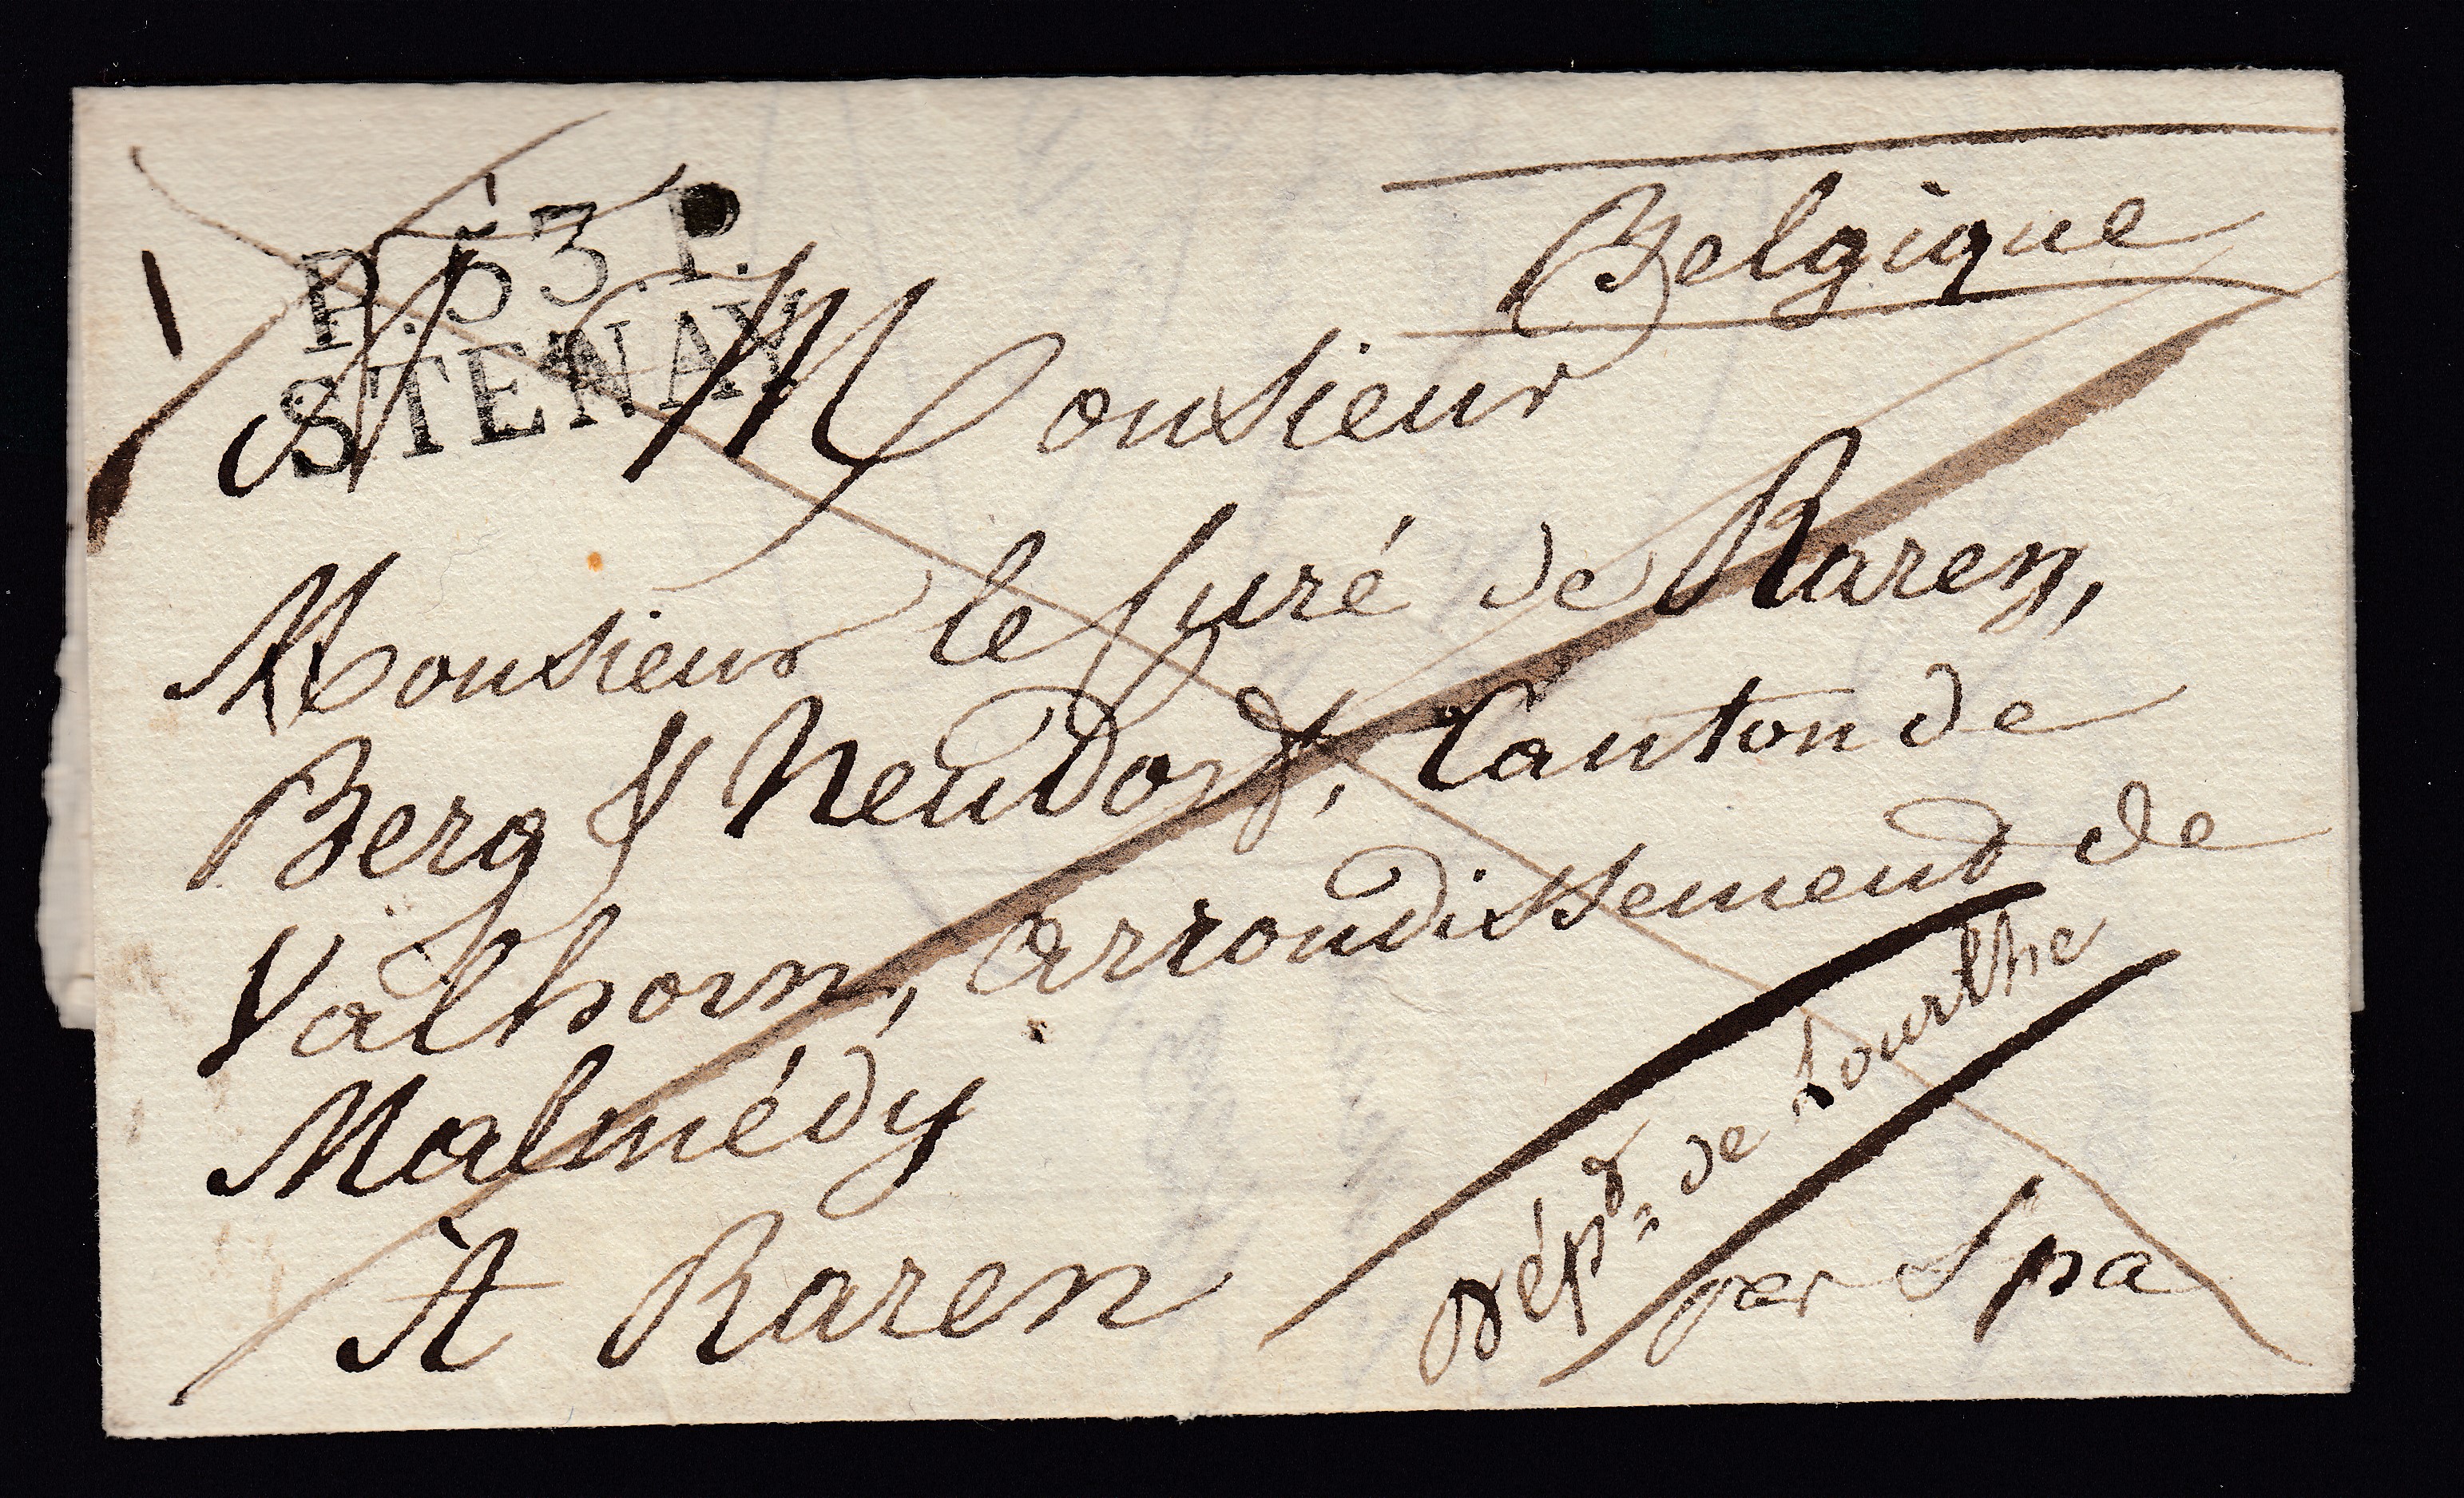 P.53.P.
STENAY
Belgique
A Monsieur
Monsieur le Curé de Raren,
Berg & Neudorf, Canton de
Valhorn, arrondissement de
Malmédy
Dépt de Lourthe
par Spa
À Raren